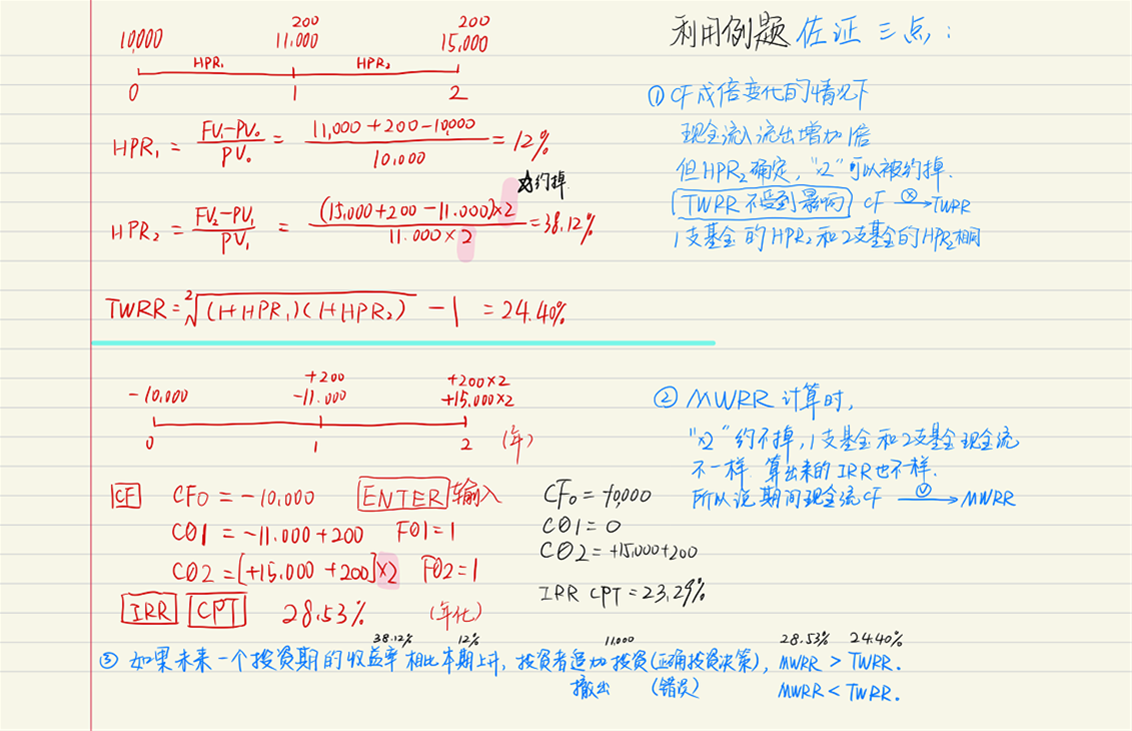 利用例题 佐证 三点:
200 200
10,000 11,000 15,000
HPR₁ HPR₂
0 1 2
HPR₁ = (FV₁-PV₀)/PV₀ = (11,000+200-10,000)/10,000 = 12%
约掉
HPR₂ = (FV₂-PV₁)/PV₁ = (15,000+200-11.000)×2/11.000×2 = 38.12%
TWRR = ²√(1+HPR₁)(1+HPR₂) - 1 = 24.40%
① CF成倍变化的情况下
现金流入流出增加1倍
但HPR₂确定,"×2"可以被约掉.
TWRR 不受到影响 CF ⓧ→ TWRR
1支基金的HPR₂和2支基金的HPR₂相同
+200 +200×2
-10,000 -11.000 +15,000×2
0 1 2 (年)
CF CF0 = -10,000 ENTER 输入
C01 = -11.000+200 F01=1
C02 = [+15.000+200]×2 F02=1
IRR CPT 28.53% (年化)
CF₀ = -10,000
C01 = 0
C02 = +15,000+200
IRR CPT = 23.29%
② MWRR 计算时,
"×2"约不掉,1支基金和2支基金现金流
不一样.算出来的IRR也不一样.
所以说期间现金流CF ✓→ MWRR
38.12% 12% 11,000 28.53% 24.40%
③ 如果未来一个投资期的收益率相比本期上升,投资者追加投资(正确投资决策),MWRR > TWRR.
撤出 (错误) MWRR < TWRR.